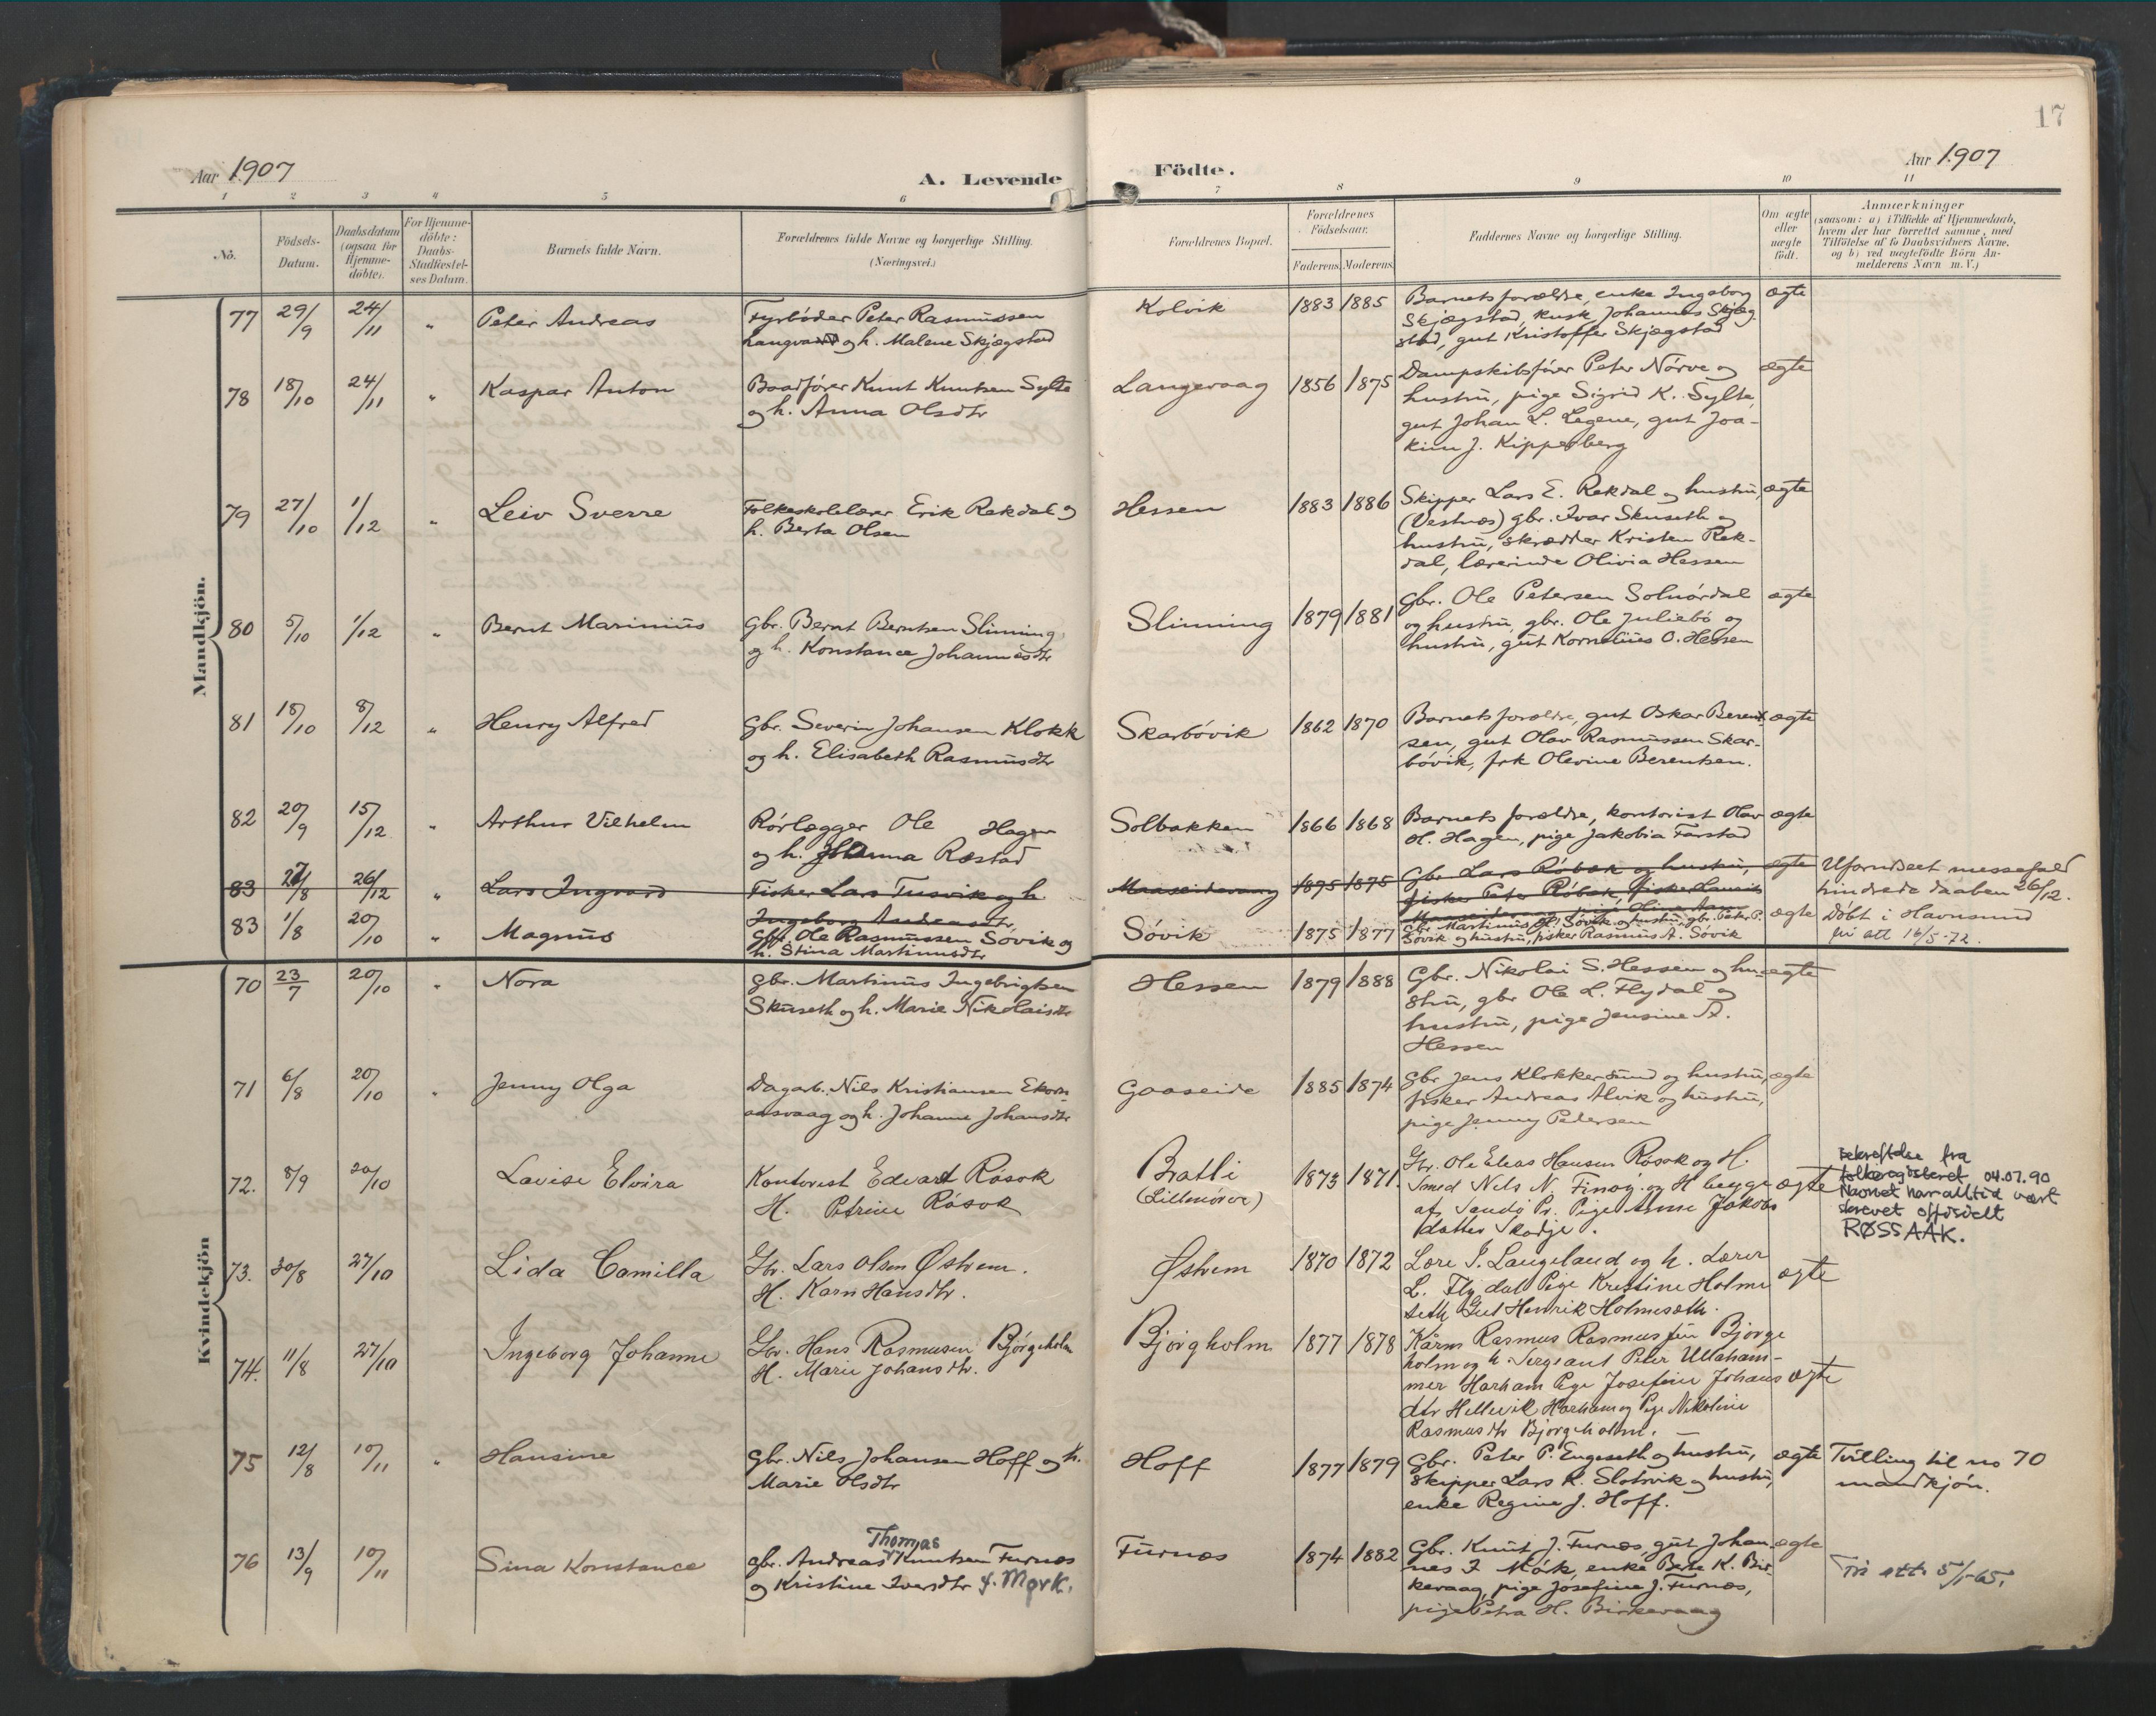 17
Aar 1907
A. Levende
Födte.
Aar 1907
1 2 3 4 5 6 7 8 9 10 11
No.
Födsels-
Datum.
Daabsdatum
(ogsaa for
Hjemme-
döbte).
For Hjemme-
döbte:
Daabs-
Stadfæstel-
ses Datum.
Barnets fulde Navn.
Forældrenes fulde Navne og borgerlige Stilling.
(Næringsvei.)
Forældrenes Bopæl.
Forældrenes
Födselsaar.
Faderens. Moderens.
Faddernes Navne og borgerlige Stilling.
Om ægte
eller
uægte
födt.
Anmærkninger
(saasom: a) i Tilfælde af Hjemmedaab,
hvem der har forrettet samme, med
Tilföielse af to Daabsvidners Navne,
og b) ved uægtefödte Börn An-
melderens Navn m. V.)
Mandkjön.
77 29/9 24/11 " Peter Andreas
Fyrbøder Peter Rasmussen
Langva og h. Malene Skjægstad
Kolvik 1883 1885
Barnets forældre, enke Ingeborg
Skjægstad, kusk Johannes Skjæg-
stad, gut Kristoffer Skjægstad
ægte
78 18/10 24/11 " Kaspar Anton
Baadfører Knut Knutsen Sylte
og h. Anna Olsdtr
Langevaag 1856 1875
Dampskibsfører Peter Nørve og
hustru, pige Sigrid K. Sylte,
gut Johan L. Legene, gut Joa-
kim J. Kipperberg
ægte
79 27/10 1/12 " Leiv Sverre
Folkeskolelærer Erik Rekdal og
h. Berta Olsen
Hessen 1883 1886
Skipper Lars E. Rekdal og hustru,
(Vestnes) gbr. Ivar Skuseth og
hustru, skrædder Kristen Rek-
dal, lærerinde Olivia Hessen
ægte
80 5/10 1/12 " Bernt Marinius
Gbr. Bernt Berntsen Slinning
og h. Konstance Johannesdtr
Slinning 1879 1881
Gbr. Ole Petersen Solnørdal
og hustru, gbr. Ole Juliebø og
hustru, gut Kornelius O. Hessen
ægte
81 18/10 8/12 " Henry Alfred
Gbr. Severin Johansen Klokk
og h. Elisabeth Rasmusdtr
Skarbøvik 1862 1870
Barnets forældre, gut Oskar Berent-
sen, gut Olav Rasmussen Skar-
bøvik, frk Olevine Berentsen.
ægte
82 20/9 15/12 " Arthur Vilhelm
Rørlægger Ole Hagen
og h. Johanna Ræstad
Solbakken 1866 1868
Barnets forældre, kontorist Olav
O. Hagen, pige Jakobia Farstad
ægte
83 27/8 26/12 " Lars Ingvard
Fisker Lars Tusvik og h
Ingeborg Andreasdtr,
Maaseidevaag 1895 1875
Gbr. Lars Røbæk og hustru,
fisker Peter Røbæk, fisker Laurits
Maaseidevaag, pige Oline Aam
ægte
Uforudseet messefald
hindrede daaben 26/12.
83 1/8 20/10 " Magnus
Gbr. Ole Rasmussen Søvik og
h. Stina Martinusdtr
Søvik 1875 1877
Gbr Martinus P. Søvik og hustru, gbr. Peter P.
Søvik og hustru, fisker Rasmus A. Søvik
ægte
Døbt i Havnsund
fri att 16/5-72.
Kvindekjön
70 23/7 20/10 " Nora
Gbr. Martinus Ingebrigtsen
Skuseth og h. Marie Nikolaisdtr
Hessen 1879 1888
Gbr. Nikolai S. Hessen og hu-
stru, gbr Ole L. Flydal og
hustru, pige Jensine N.
Hessen
ægte
71 6/8 20/10 " Jenny Olga
Dagarb. Nils Kristiansen Ekorn-
aasvaag og h. Johanne Johansdtr
Gaaseide 1885 1874
Gbr Jens Klokkersund og hustru,
fisker Andreas Alvik og hustru,
pige Jenny Petersen
ægte
72. 5/9 20/10 Lovise Elvira
Kontorist Edvart Røsok
H. Petrine Røsok
Bratli
(Lillmoen)
1873 1871.
Gbr. Ole Elias Hansen Røsok og H.
Smed Nils N. Finøy og H. begge
af Sandø Pr. Pige Anne Jakobs
datter Skodje.
ægte
Bekreftelse fra
folkeregisteret 04.07.90
Navnet har alltid vært
skrevet offisielt
RØSSAAK.
73. 30/8 27/10 Lida Camilla
Gbr. Lars Olsen Østrem.
H. Karn Hansdtr.
Østrem 1870 1872
Lære I. Langeland og h. Lærer
L. Flydal Pige Kristine Holme
seth Gut Henrik Holmeseth.
ægte
74. 11/8 27/10 Ingeborg Johanne
Gbr. Hans Rasmusen Bjørgeholm
H. Marie Johansdtr.
Bjørgholm 1877 1878
Kårm Rasmus Rasmussen Bjørge
holm og h. Sergeant Peter Ullaham-
mer Harham Pige Josefine Johans
dtr Hellevik Harham og Pige Nikoline
Rasmusdtr Bjørgeholm.
ægte
75 12/8 10/11 " Hansine
Gbr. Nils Johansen Hoff og h.
Marie Olsdtr
Hoff 1877 1879
Gbr. Peter P. Engeseth og hustru,
skipper Lars K. Slotsvik og hustru,
enke Regine J. Hoff.
ægte
Tvilling til no 70
mandkjøn.
76 13/9 10/11 Sina Konstance
Thomas
gbr. Andreas Knutsen Furnes
og Kristine Iversdtr f. Mørk.
Furnes 1874 1882
Gbr. Knut J. Furnes, gut Johan-
nes I Møk, enke Berte K. Bir-
kevaag, pige Josefine J. Furnes,
pige Petra H. Birkevaag
ægte
Fri att. 5/1-65.